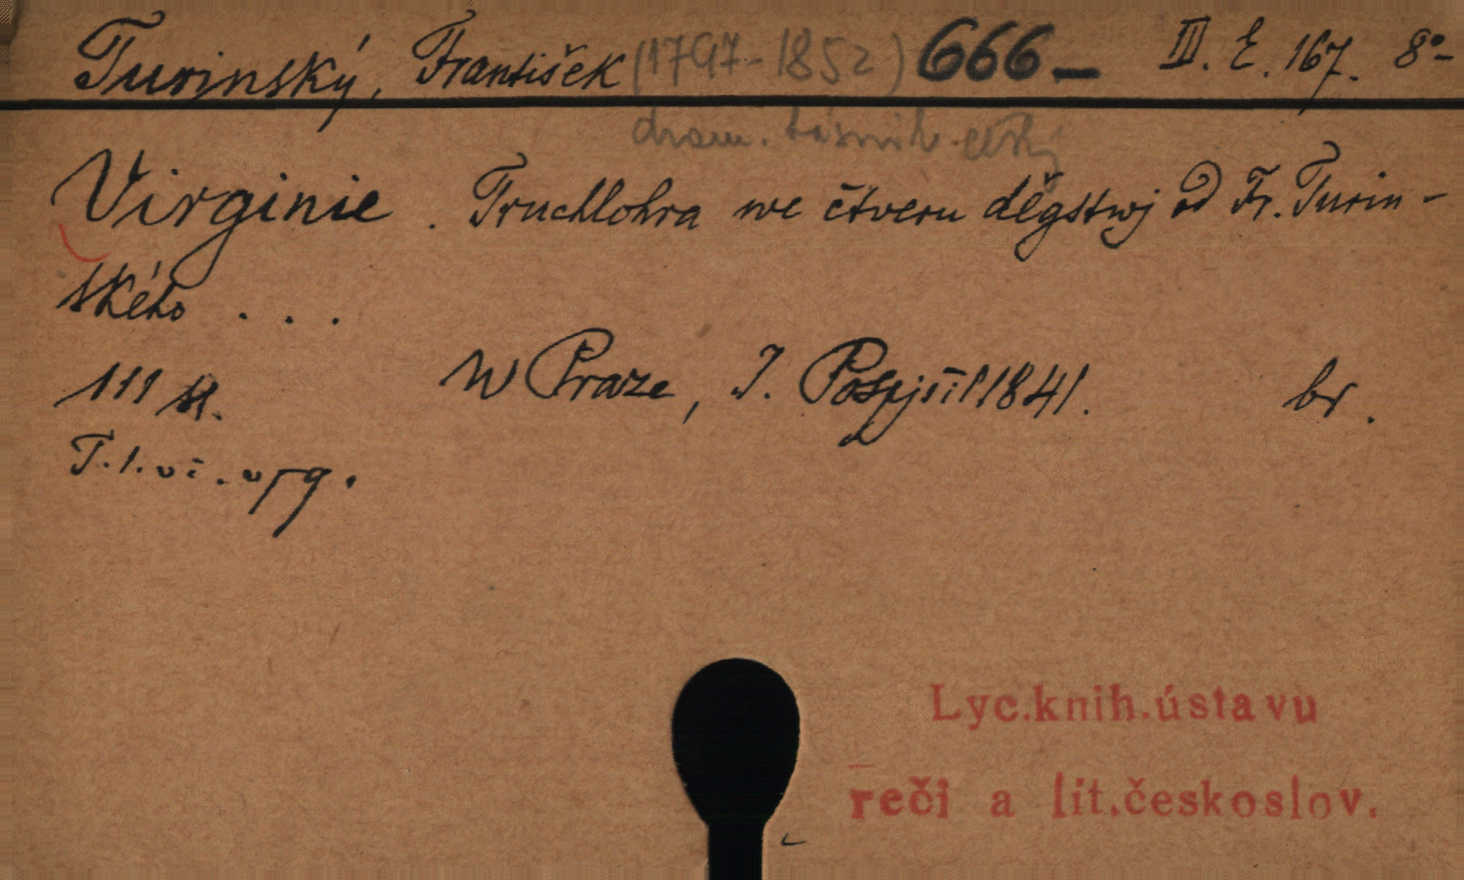 Turinský, František (1797-1852) 666- III. E. 167. 8°-
dram. básník český
Virginie. Truchlohra we čtveru děgstwj od Fr. Turin-
ského . . .
111 st. W Praze, J. Pospjšil 1841. br.
Lyc.knih.ústavu
reči a lit.českoslov.